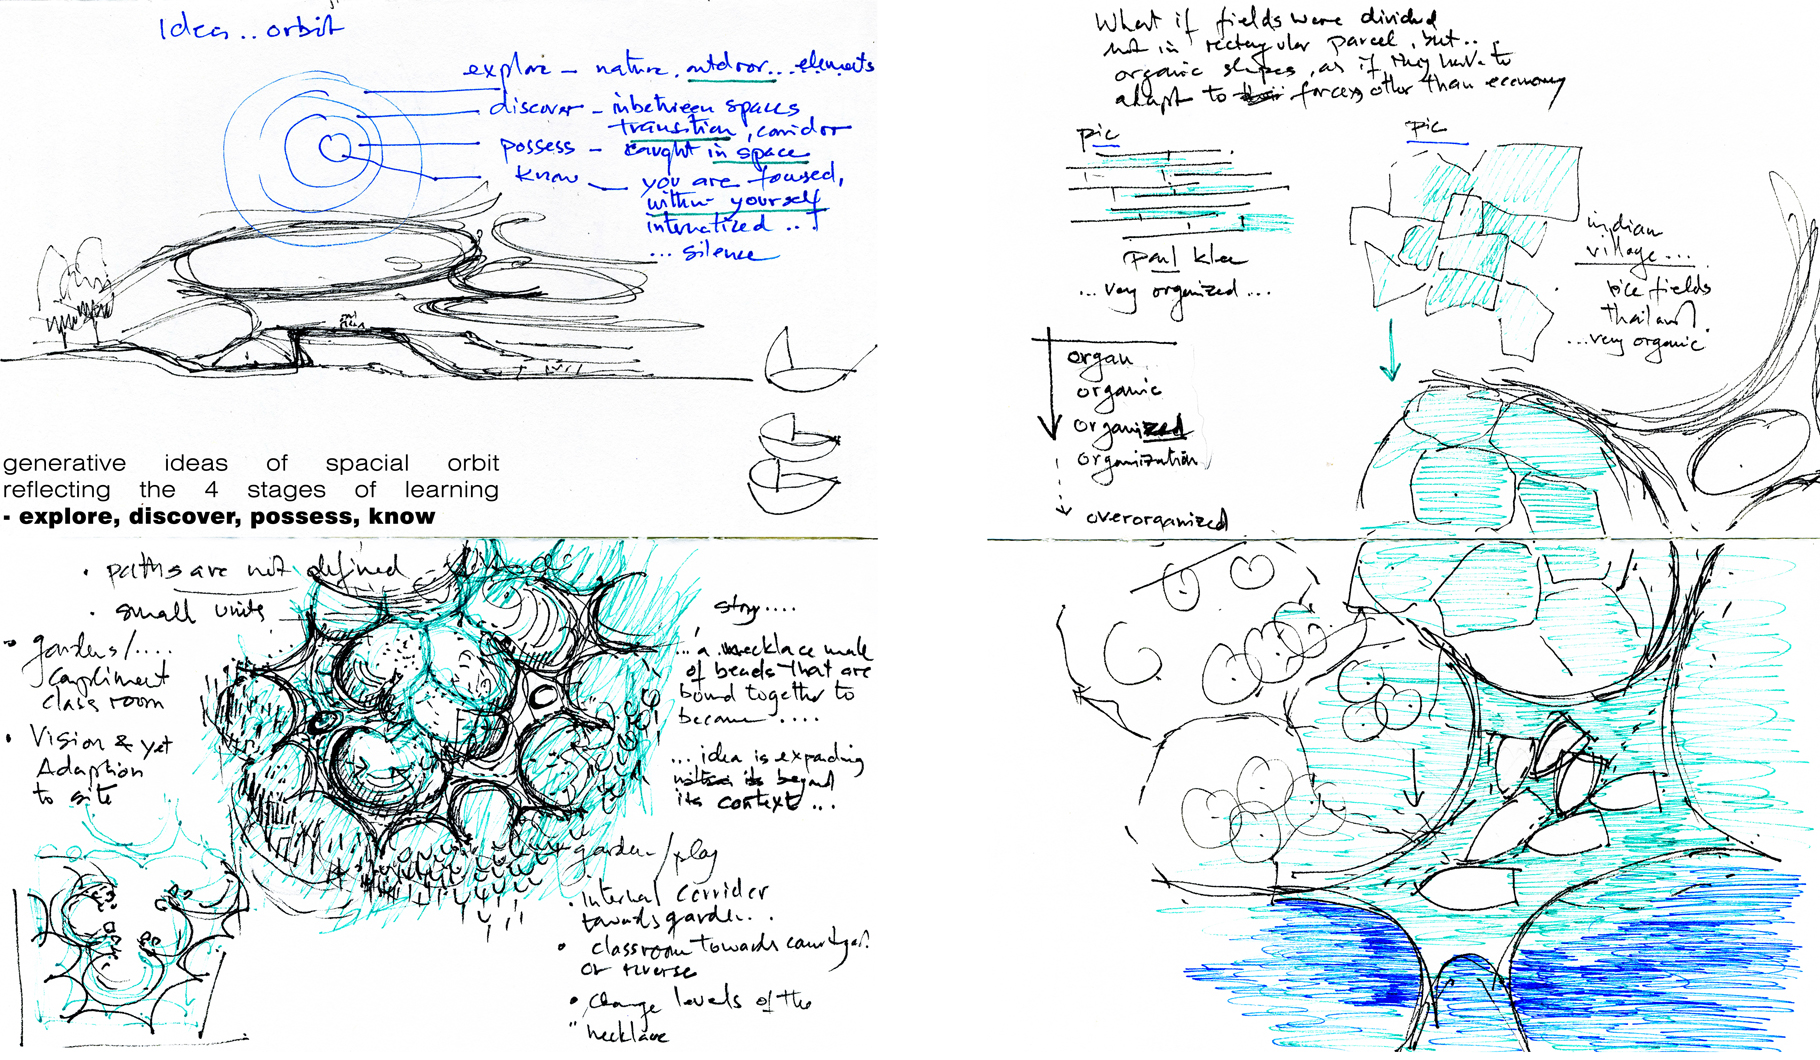 Idea.. orbit
explore – nature, outdoor... elements
discover – inbetween spaces
transition, corridor
possess – caught in space
know – you are focused,
within yourself
internalized ...
... silence
generative ideas of spacial orbit
reflecting the 4 stages of learning
- explore, discover, possess, know
• paths are not defined
• small units
• gardens/....
compliment
class room
• Vision & yet
Adaption
to site
story....
.. a necklace made
of beads that are
bound together to
become ....
... idea is expanding
beyond
its context ...
garden/play
• internal corrider
towards garden...
• classroom towards courtyard
or reverse
• change levels of the
"necklace
What if fields were divided
not in rectangular parcel, but...
organic shapes, as if they have to
adapt to forces other than economy
pic
paul klee
... very organized ...
pic
indian
village...
rice fields
thailand.
...very organic
organ
organic
organized
organization
overorganized